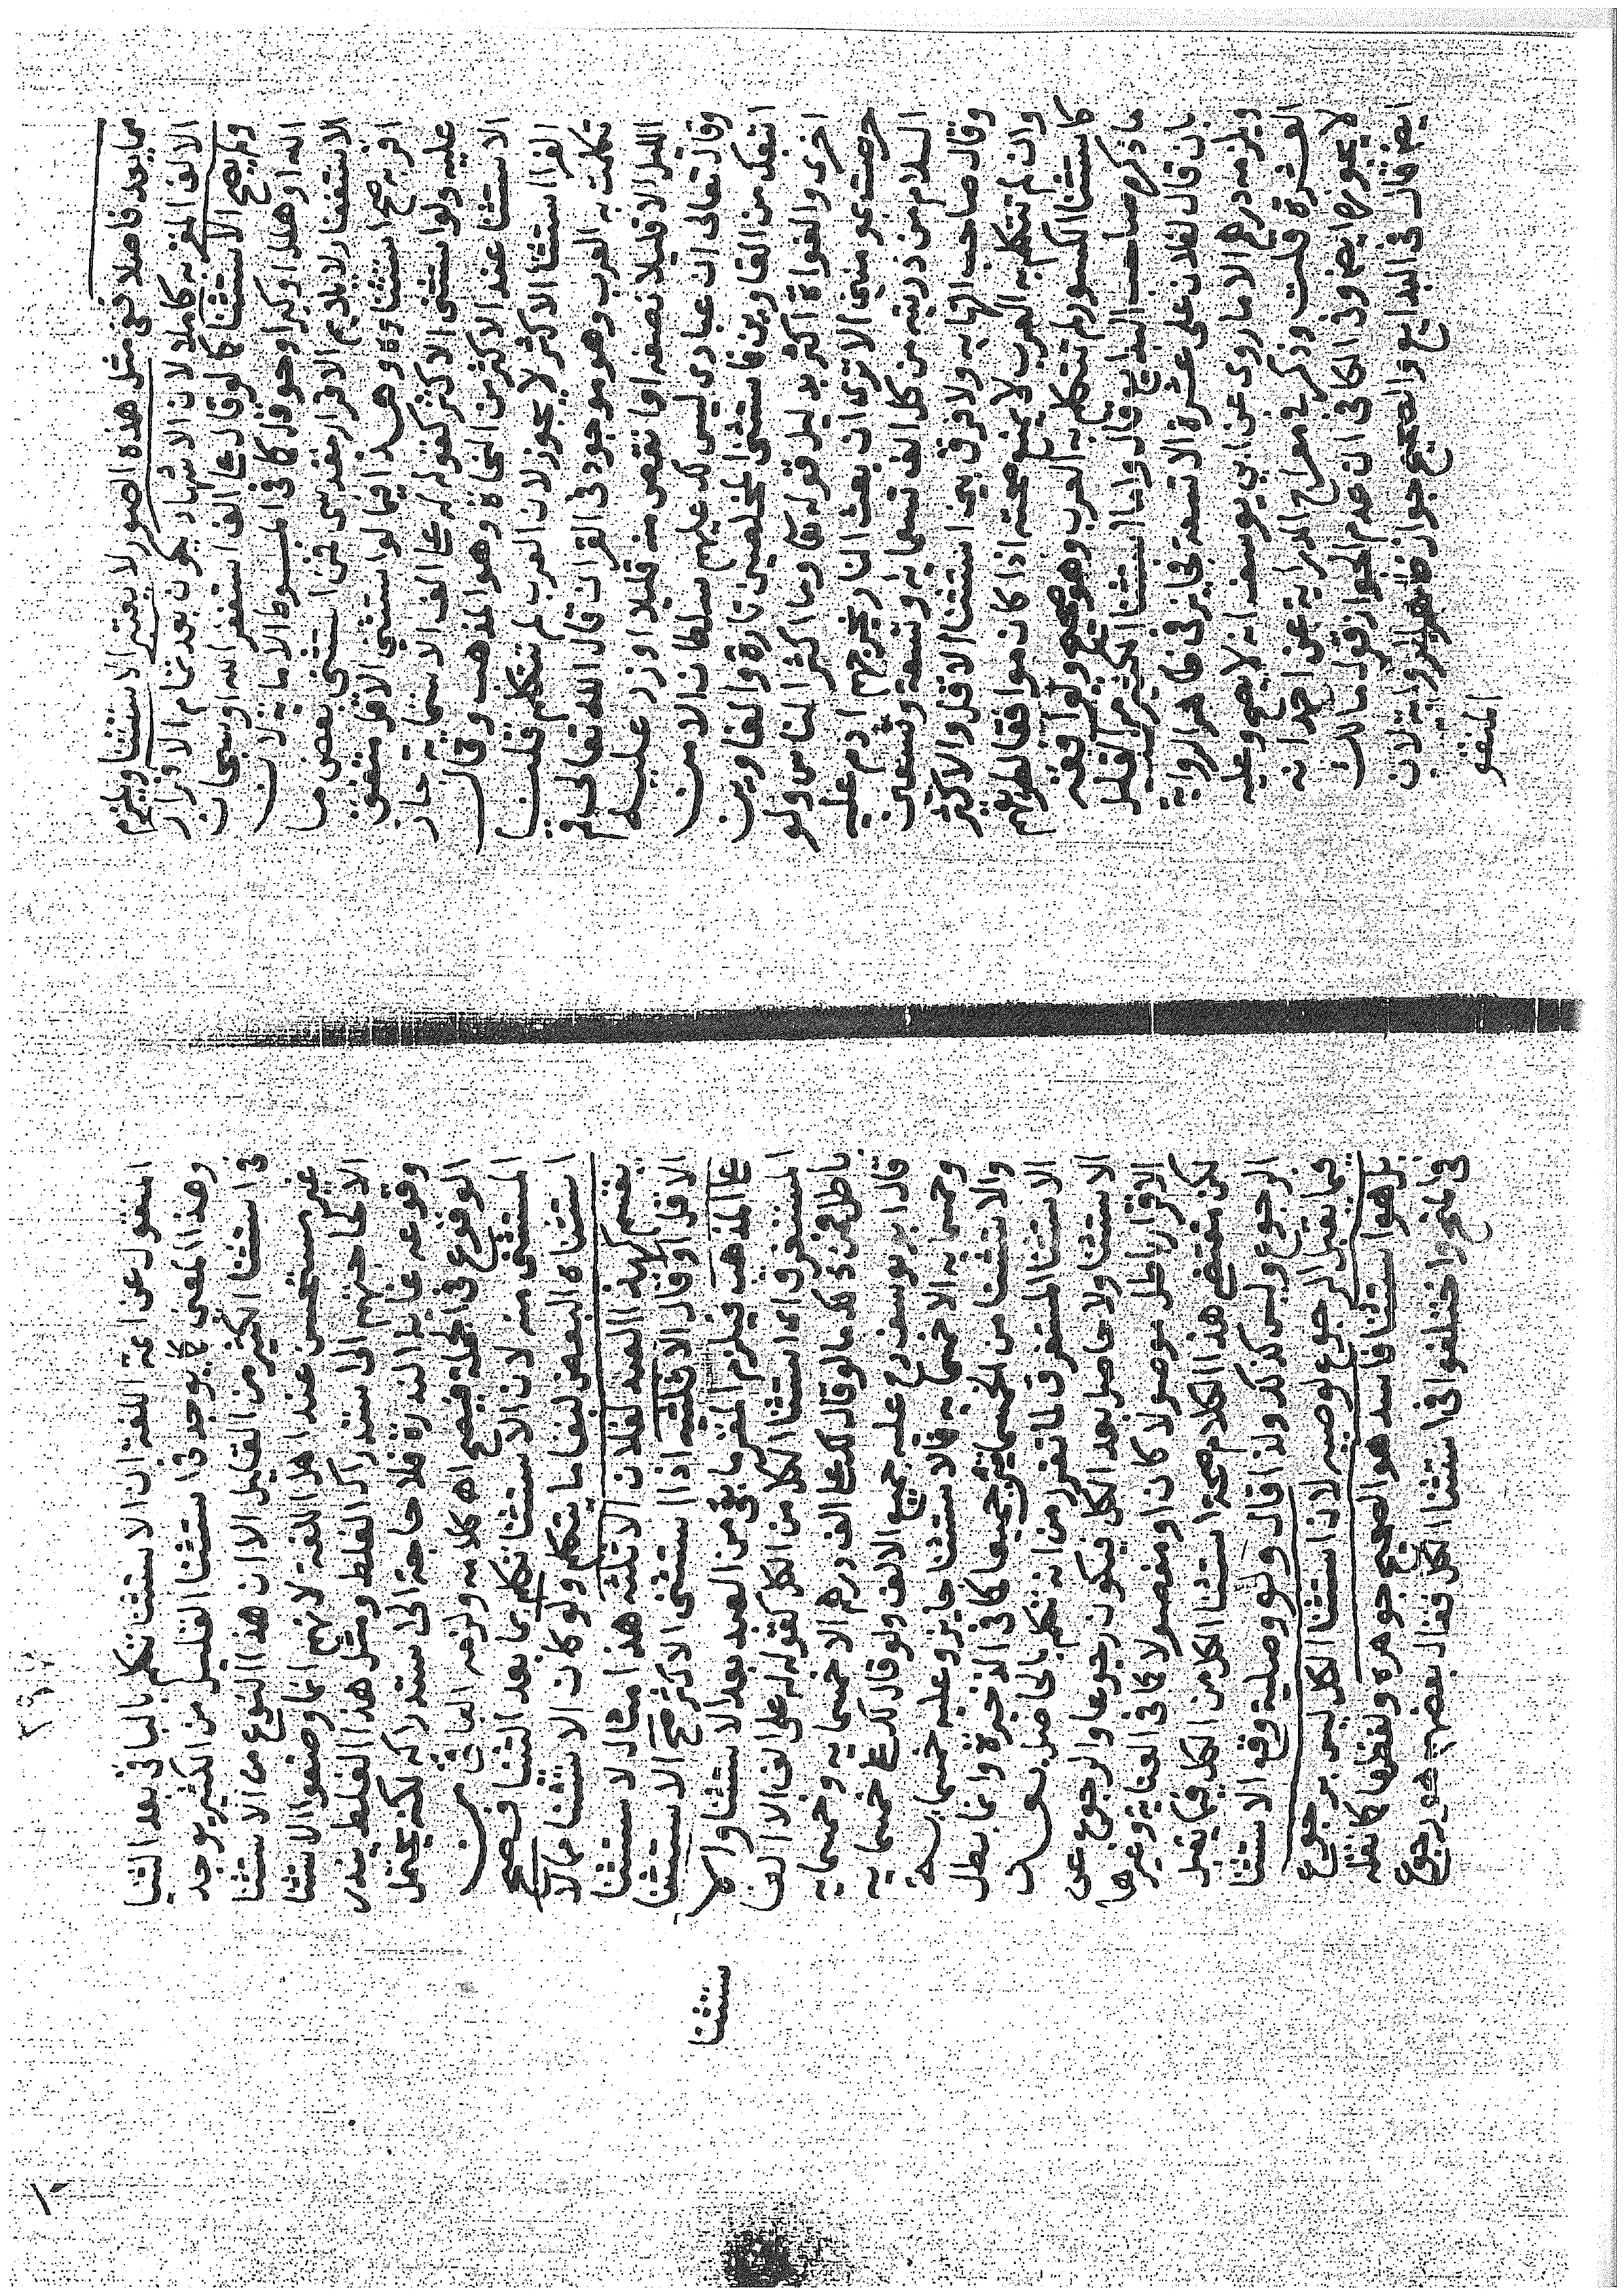 مما يعد فاصلا ففي مثل هذه الصور لا يعتبر الاستثنا ويلزم
الالف المقر به كاملا لان الاشهاد يكون بعد تمام الاقرار
ولم يصح الاستثنا كالوقال علي الف استغفر الله او سبحان
الله او هلل او كبر او حوقل كما في المبسوط الا ماية لان
الاستغفار لا يلايم الاقرار فمن استثنى بعض ما
اقر به صح استثناؤه وهذا فيما لو استثنى الاقل متفق
عليه ولو استثنى الاكثر كقوله له علي الف الا ستماية جاز
الاستثنا عند الاكثر من النحاة وهو المذهب وقال
الفرا استثنا الاكثر لا يجوز لان العرب لم تتكلم قلت
تكلمت به العرب وهو موجود في القران قال الله تعالى قم
الليل الا قليلا نصفه او انقص منه قليلا او زد عليه
وقال تعالى ان عبادي ليس لك عليهم سلطان الا من
اتبعك من الغاوين فاستثنى المخلصين تارة والغاوين
اخرى والغواة اكثر بدليل قوله تعا وما اكثر الناس ولو
حرصت بمومنين الا ترى ان بعث النار يخرجهم ادم عليه
السلام من ذريته من كل الف تسعماية وتسعة وتسعين
وقال صاحب النهاية ولا فرق بين استثنا الاقل والاكثر
وان لم تتكلم به العرب لا يمنع صحته اذا كان موافقا لطريقهم
كاستثنا الكسور لم تتكلم به العرب وهو صحيح
ما ذكره صاحب البدايع قال واما استثنا الكثير من القليل
بان قال لفلان علي عشرة الا تسعة فجايز في ظاهر الرواية
ويلزمه درهم الا ما روى عن ابي يوسف انه لا يصح وعليه
العشرة قلت وذكر في معراج الدراية عن احمد انه
لا يجوز ايضا وفي الكافي ان عدم الجواز قول مالك
ايضا قال في البدايع والصحيح جواز ظاهر الرواية لان
المنقو
المنقول عن ائمة اللغة ان الاستثنا تكلم بالباقي بعد الثنيا
وهذا المعنى كما يوجد في استثنا القليل من الكثير يوجد
في استثنا الكثير من القليل الا ان هذا النوع من الاستثنا
غير مستحسن عند اهل اللغة لانهم انما وضعوا الاستثنا
الا لحاجتهم الى استدراك الغلط ومثل هذا الغلط يندر
وقوعه غاية الندرة فلا حاجة الى استدراكه لكنه يحتمل
الوقوع في الجملة فيصح اه كلامه ولزمه الباقي من
المستثنى منه لان الاستثنا تكلم بما بعد الثنيا فصح
استثناه البعض لبقا ما تكلم ولو كان الاستثنا مما لا
يقسم كهذا العبد لفلان الا ثلثه هذا مثال لاستثنا
الاقل او قال الا ثلثيه اذا استثنى الاكثر صح الاستثنا
علي المذهب فيلزم المقر ما بقي من العبد بعد الاستثنا والا
ستثنا
المستغرق اى استثنا الكل من الكل كقوله له علي الف الا الفا
باطل فمن ذلك ما لو قال لك علي الف درهم الا خمسماية وخمسماية
قال ابو يوسف رح عليه جميع الالف ولو قال لك علي خمسماية
وخمسماية الا خمسماية فالاستثنا جايز وعليه خمسماية
والاستثنا من الخمسمايتين جميعا كما في الذخيرة وانما بطل
الاستثنا المستغرق لما تقرر من انه تكلم بالحاصل بعد
الاستثنا ولا حاصل بعد الكل فيكون رجوعا والرجوع عن
الاقرار باطل موصولا كان او مفصولا كما في العناية وغيرها
لكن مقتضى هذا الكلام صحة استثنا الكل من الكل فيما يقبل
الرجوع وليس كذلك ولذا قال ولو وصلية وقع الاستثنا
فيما يقبل الرجوع لوصيه لان استثنا الكل ليس برجوع
بل هو استثنا فاسد هو الصحيح جوهرة ولفظها كما نقله
في المنح واختلفوا في استثنا الكل فقال بعضهم هو رجوع